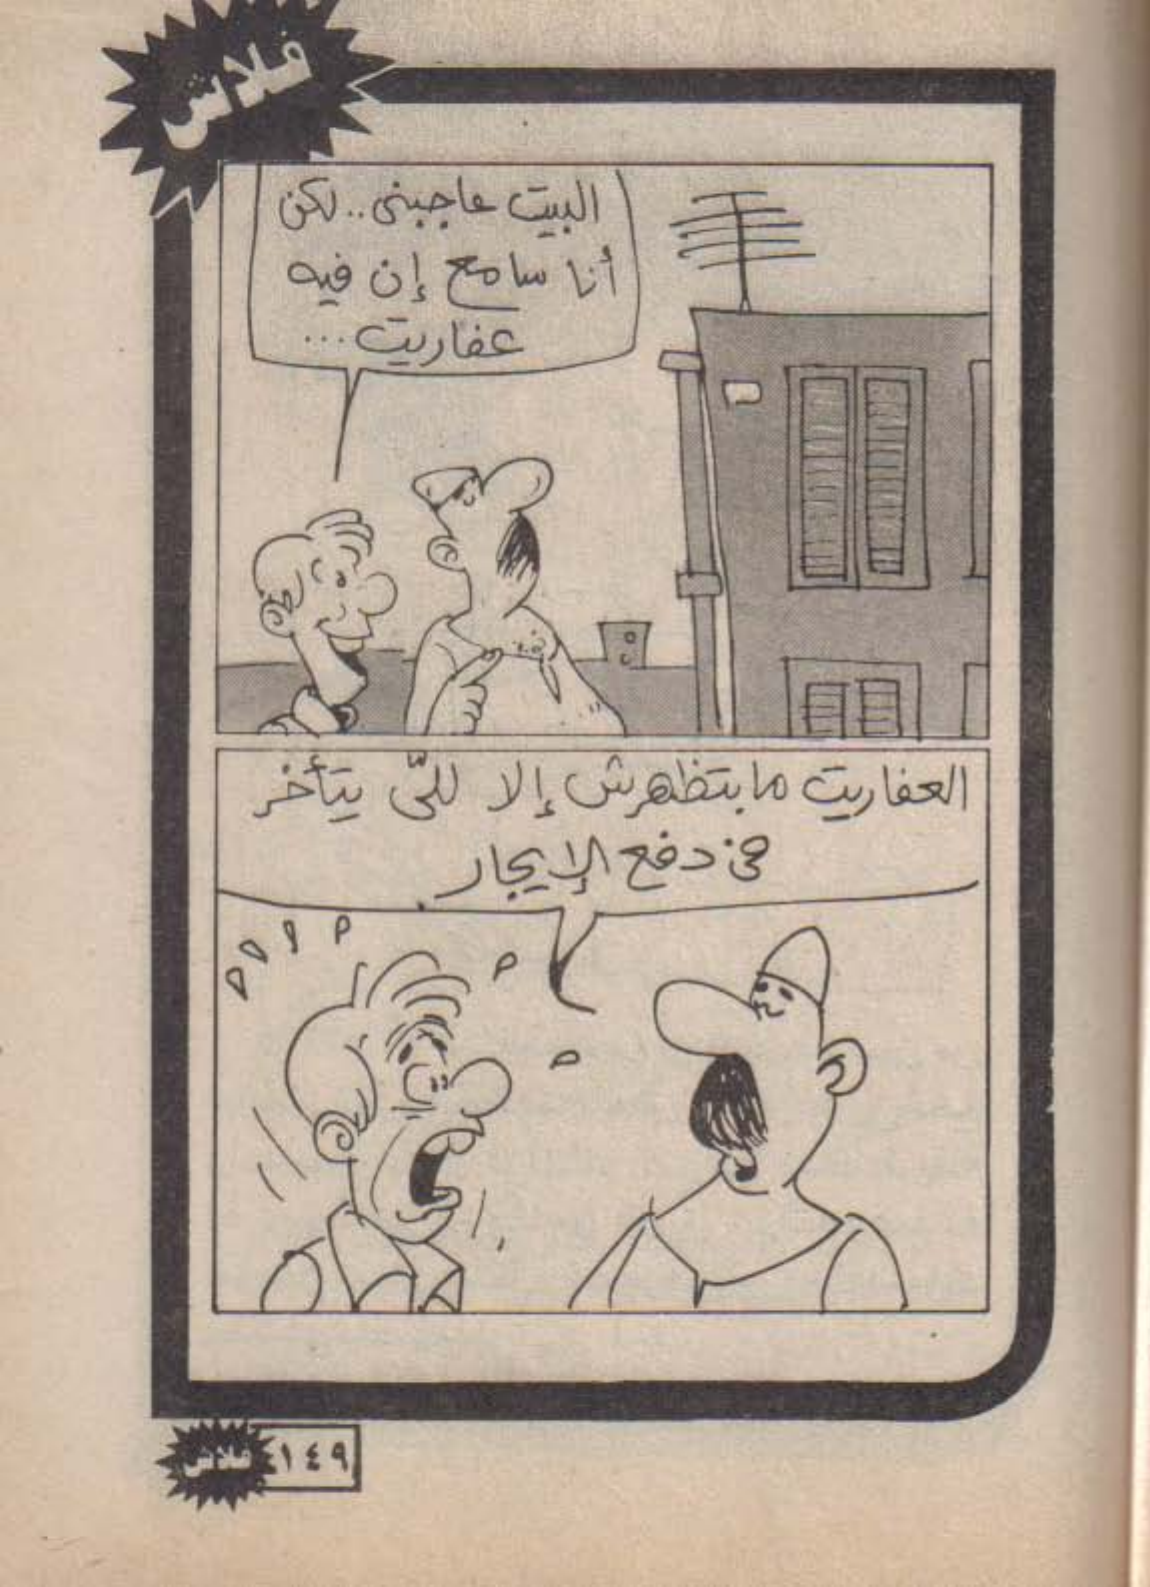 فلاش
البيت عاجبنى.. لكن
أنا سامع إن فيه
عفاريت...
العفاريت مابتظهرش إلا للّى يتأخر
فى دفع الإيجار.
فلاش ١٤٩